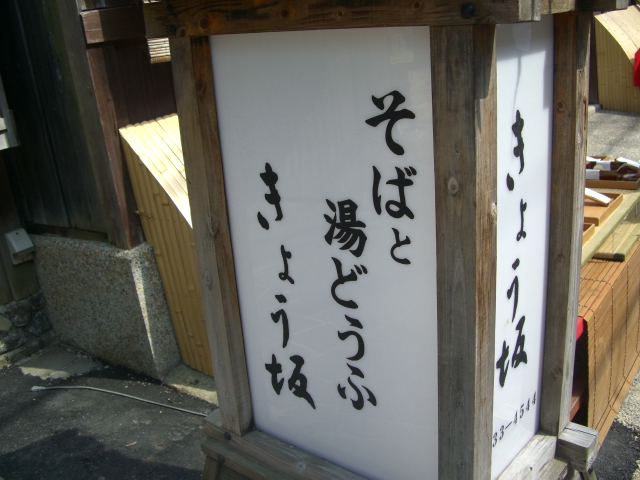 そばと
湯どうふ
きょう坂
きょう坂
33-4544